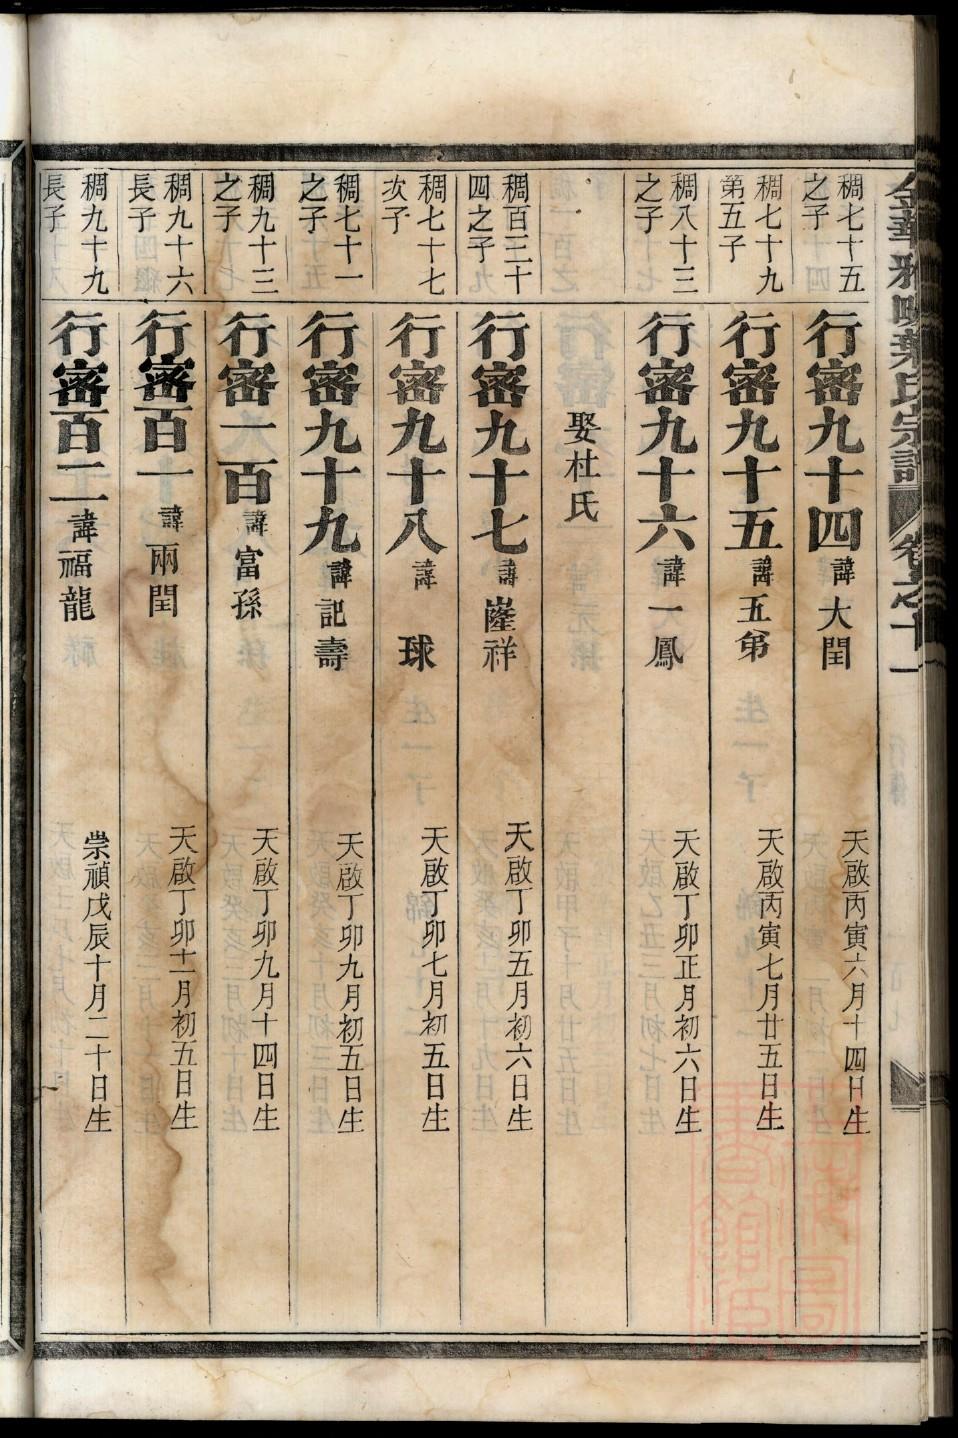 金華雅畈葉氏宗譜 卷之十一
稠七十五之子
行密九十四 諱大閏 天啟丙寅六月十四日生
稠七十九第五子
行密九十五 諱五弟 天啟丙寅七月廿五日生
稠八十三之子
行密九十六 諱一鳳 天啟丁卯正月初六日生
娶杜氏
稠百三十四之子
行密九十七 諱 祥 天啟丁卯五月初六日生
稠七十七次子
行密九十八 諱 球 天啟丁卯七月初五日生
稠七十一之子
行密九十九 諱記壽 天啟丁卯九月初五日生
稠九十三之子
行密一百 諱富孫 天啟丁卯九月十四日生
稠九十六長子
行密百一 諱兩閏 天啟丁卯十一月初五日生
稠九十九長子
行密百二 諱福龍 崇禎戊辰十月二十日生